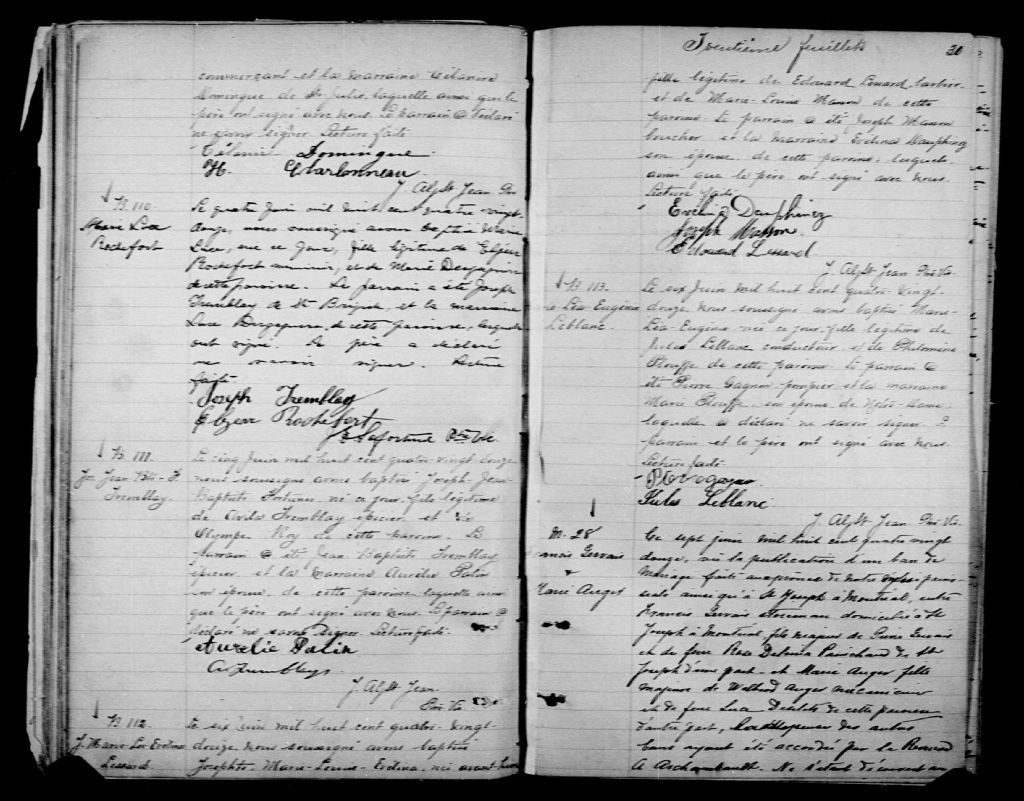 commerçant et la marraine Mélanire
Domingue de St Julie, laquelle ainsi que le
père ont signé avec nous. Le parrain a déclaré
ne savoir signer. Lecture faite.
Mélanie Domingue
H. Charbonneau
J. Alp. St Jean Ptre
B. 110.
Marie Luce
Rochefort
Le quatre Juin mil huit cent quatre vingt-
douze, nous soussigné avons baptisé Marie
Luce, née ce jour, fille légitime de Elzéar
Rochefort menuisier, et de Marie Desgagnier
de cette paroisse. Le parrain a été Joseph
Tremblay de Ste Brigide, et la marraine
Luce de cette paroisse, lesquels
ont signé. Le père a déclaré
ne savoir signer. Lecture
faite
Joseph Tremblay
Elzear Rochefort
Lafortune Ptre Vic
B. 111.
Jh Jean Bte - F.
Tremblay.
Le cinq Juin mil huit cent quatre-vingt douze
nous soussigné avons baptisé Joseph Jean-
Baptiste né ce jour, fils légitime
de Avila Tremblay épicier et de
Olympe Roy de cette paroisse. Le
parrain a été Jean Baptiste Tremblay
épicier et la marraine Aurélie Patin
son épouse, de cette paroisse laquelle ainsi
que le père ont signé avec nous. Le parrain a
déclaré ne savoir signer. Lecture faite.
Aurelie Patin
A. Tremblay
J. Alp. St Jean
Ptre Vic
B. 112.
J. Marie Ls Evelina
Lessard
Le six Juin mil huit cent quatre-vingt-
douze, nous soussigné avons baptisé
Josephte-Marie-Louise-Evelina, née avant-hier
Trentième feuillet 30
fille légitime de Edouard Lessard barbier
et de Marie-Louise Masson de cette
paroisse. Le parrain a été Joseph Masson
boucher et la marraine Evelina Dauphinez
son épouse, de cette paroisse, lesquels
ainsi que le père ont signé avec nous.
Lecture faite.
Evelina Dauphinez
Joseph Masson
Edouard Lessard
J. Alp. St Jean Ptre Vic.
B. 113.
Léa Eugénie
Leblanc
Le six Juin mil huit cent quatre-vingt-
douze, nous soussigné avons baptisé Marie-
Léa-Eugénie née ce jour, fille légitime de
Jules Leblanc conducteur et de Philomène
Plouffe de cette paroisse. Le parrain a
été Pierre Gagnon pompier et la marraine
Marie Plouffe, son épouse, de Notre-Dame,
laquelle a déclaré ne savoir signer. Le
parrain et le père ont signé avec nous.
Lecture faite.
Jules Leblanc
J. Alp. St Jean Ptre Vic.
M. 28
Francis Gervais
&
Marie Auger
Ce sept juin mil huit cent quatre vingt
douze, vu la publication d'un ban de
mariage faite au prône de notre messe parois-
siale ainsi qu'à St Joseph à Montréal, entre
Francis Gervais domicilié à St
Joseph à Montréal fils majeur de Pierre Gervais
et de feue Rose Delima de St
Joseph d'une part - et Marie Auger fille
majeure de Auger mécanicien
et de feue de cette paroisse
d'autre part, la dispense des autres
bans ayant été accordée par le Révérend
A Archambault. Ne s'étant découvert au